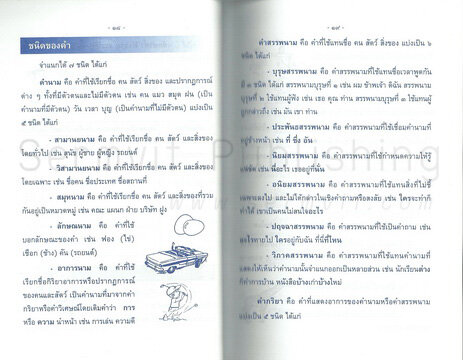 - ๑๘ -
ชนิดของคำ
จำแนกได้ ๗ ชนิด ได้แก่
คำนาม คือ คำที่ใช้เรียกชื่อ คน สัตว์ สิ่งของ และปรากฏการณ์
ต่าง ๆ ทั้งที่มีตัวตนและไม่มีตัวตน เช่น คน แมว สมุด ฝน (เป็น
คำนามที่มีตัวตน) วัน เวลา บุญ (เป็นคำนามที่ไม่มีตัวตน) แบ่งเป็น
๕ ชนิด ได้แก่
- สามานยนาม คือ คำที่ใช้เรียกชื่อ คน สัตว์ และสิ่งของ
โดยทั่วไป เช่น สุนัข ผู้ชาย ผู้หญิง รถยนต์
- วิสามานยนาม คือ คำที่ใช้เรียกชื่อ คน สัตว์ และสิ่งของ
โดยเฉพาะ เช่น ชื่อคน ชื่อประเทศ ชื่อสถานที่
- สมุหนาม คือ คำที่ใช้เรียกชื่อ คน สัตว์ และสิ่งของที่รวม
กันอยู่เป็นหมวดหมู่ เช่น คณะ แผนก ฝ่าย บริษัท ฝูง
- ลักษณนาม คือ คำที่ใช้
บอกลักษณะของคำ เช่น ฟอง (ไข่)
เชือก (ช้าง) คัน (รถยนต์)
- อาการนาม คือ คำที่ใช้
เรียกชื่อกิริยาอาการหรือปรากฏการณ์
ของคนและสัตว์ เป็นคำนามที่มาจากคำ
กริยาหรือคำวิเศษณ์โดยเติมคำว่า การ
หรือ ความ นำหน้า เช่น การเล่น ความดี
- ๑๙ -
คำสรรพนาม คือ คำที่ใช้แทนชื่อ คน สัตว์ สิ่งของ แบ่งเป็น ๖
ชนิด ได้แก่
- บุรุษสรรพนาม คือ คำสรรพนามที่ใช้แทนชื่อเวลาพูดกัน
มี ๓ ชนิด ได้แก่ สรรพนามบุรุษที่ ๑ เช่น ผม ข้าพเจ้า ดิฉัน สรรพนาม
บุรุษที่ ๒ ใช้แทนผู้ฟัง เช่น เธอ คุณ ท่าน สรรพนามบุรุษที่ ๓ ใช้แทนผู้
ถูกกล่าวถึง เช่น มัน เขา ท่าน
- ประพันธสรรพนาม คือ คำสรรพนามที่ใช้เชื่อมคำนามที่
อยู่ข้างหน้า เช่น ที่ ซึ่ง อัน
- นิยมสรรพนาม คือ คำสรรพนามที่ใช้กำหนดความให้รู้
แน่ชัด เช่น นี่อะไร เธออยู่ที่นั่น
- อนิยมสรรพนาม คือ คำสรรพนามที่ใช้แทนสิ่งที่ไม่ชี้
เฉพาะลงไป และไม่ได้กล่าวในเชิงคำถามหรือสงสัย เช่น ใครจะทำก็
ทำได้ เขาเป็นคนไม่สนใจอะไร
- ปฤจฉาสรรพนาม คือ คำสรรพนามที่ใช้เป็นคำถาม เช่น
อะไรหายไป ใครอยู่กับฉัน ที่นี่ที่ไหน
- วิภาคสรรพนาม คือ คำสรรพนามที่ใช้แทนคำนามที่
แสดงให้เห็นว่าคำนามนั้นจำแนกออกเป็นหลายส่วน เช่น นักเรียนต่าง
ก็ทำการบ้าน หนังสือบ้างเก่าบ้างใหม่
คำกริยา คือ คำที่แสดงอาการของคำนามหรือคำสรรพนาม
แบ่งเป็น ๕ ชนิด ได้แก่